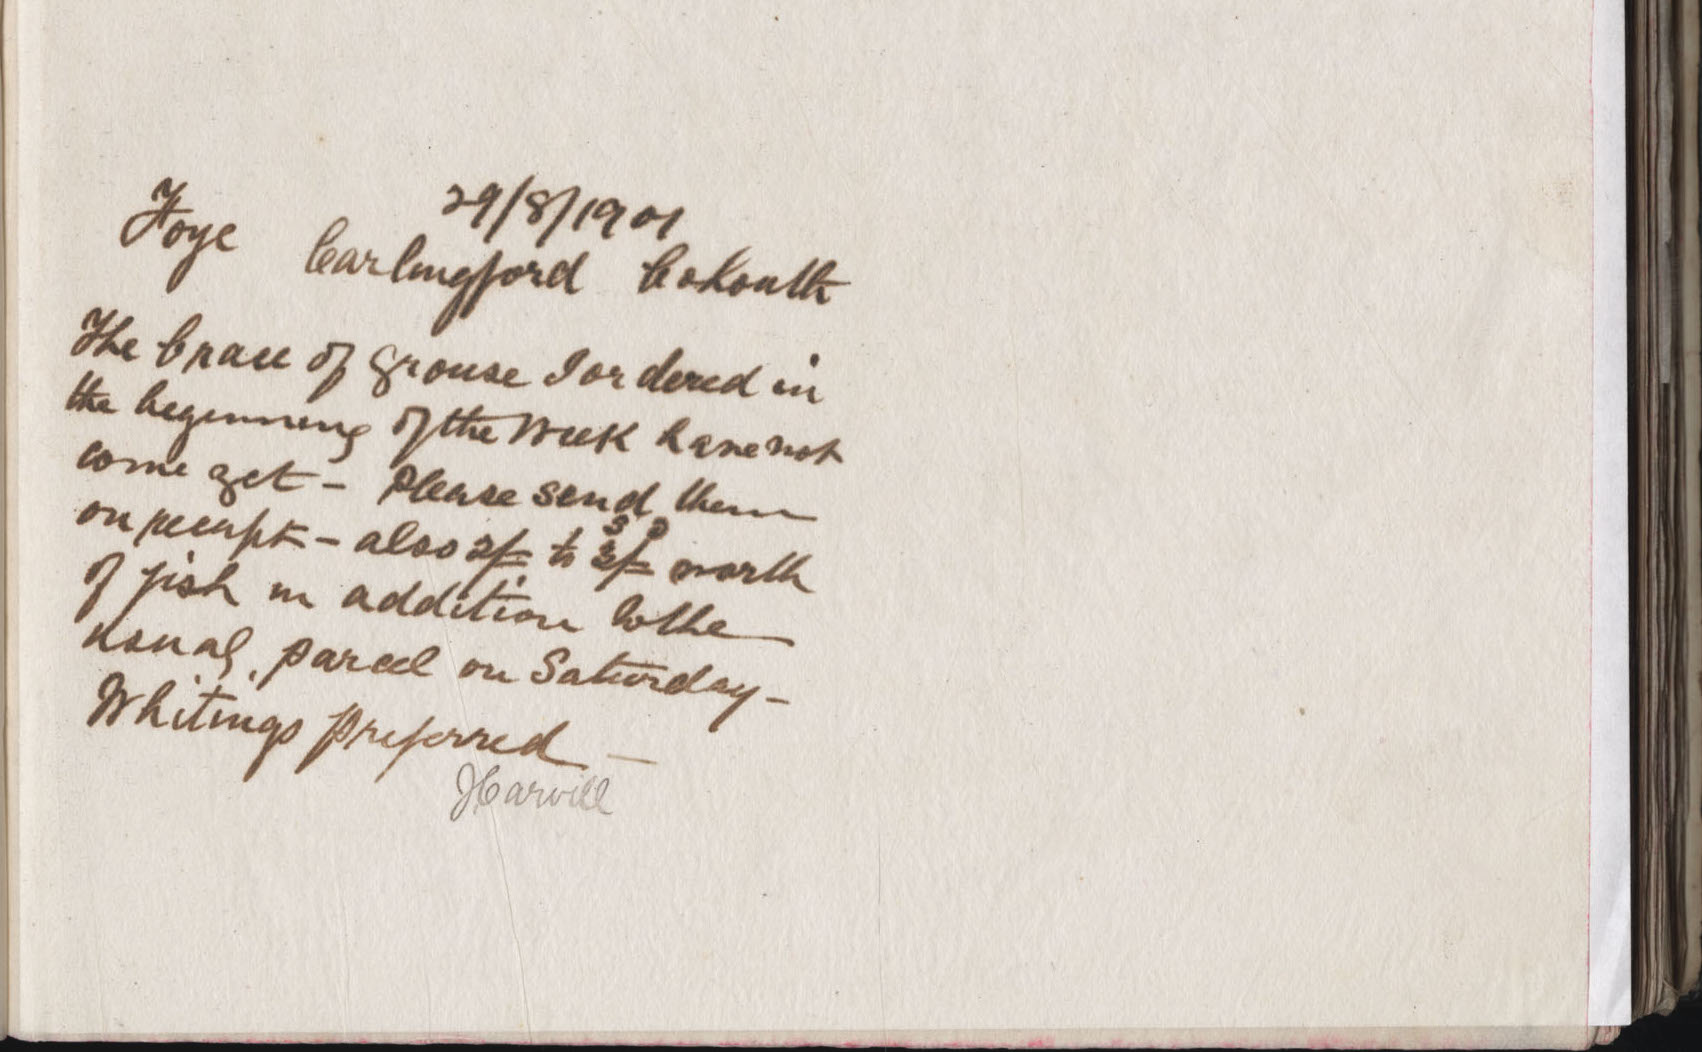 29/8/1901
Foye Carlingford Co Louth
The brace of grouse I ordered in
the beginning of the Week have not
come yet – Please send them
on receipt – also 2/= to 3/= worth
of fish in addition to the
usual parcel on Saturday –
Whitings preferred –
JCarvill